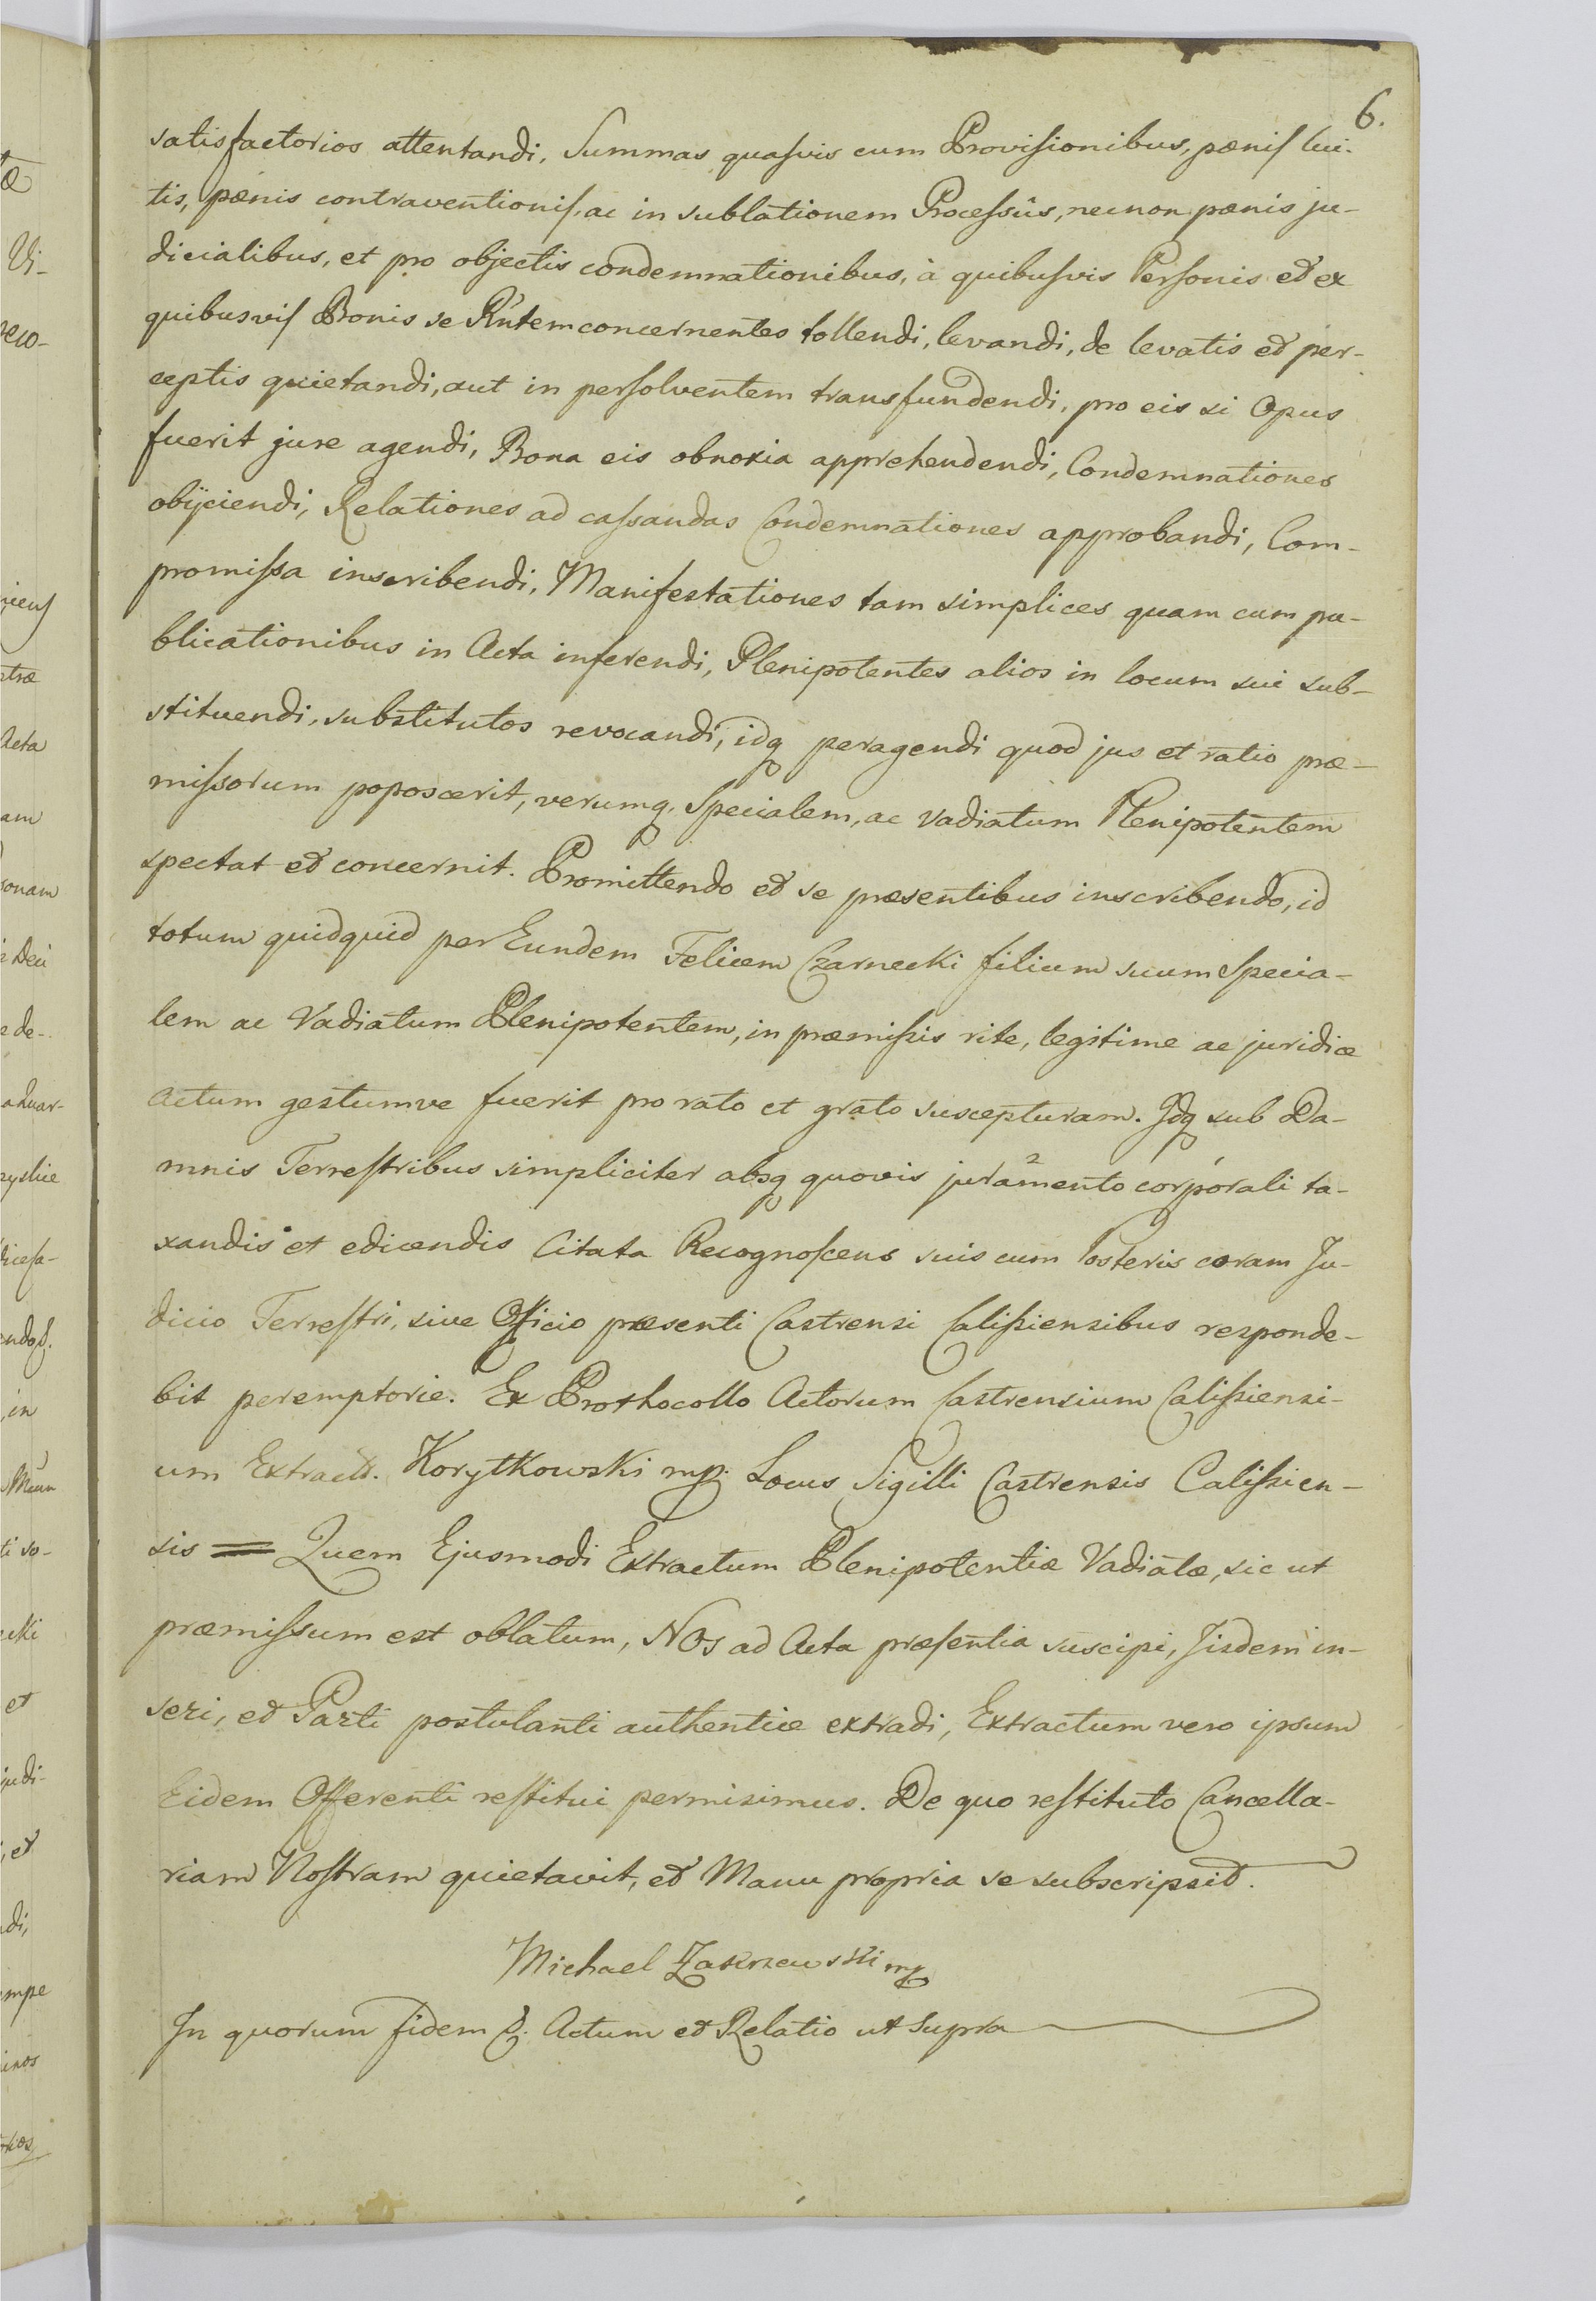 6.
satisfactorios attentandi, Summas quasvis cum Provisionibus, pœnis lui-
tis, pœnis contraventionis, ac in sublationem Processûs, necnon pœnis ju-
dicialibus, et pro objectis condemnationibus, à quibusvis Personis et ex
quibusvis Bonis se Rñtem concernentes tollendi, levandi, de levatis et per-
ceptis quietandi, aut in persolventem transfundendi, pro eis si Opus
fuerit jure agendi, Bona eis obnoxia apprehendendi, Condemnationes
obijciendi, Relationes ad cassandas Condemnationes approbandi, Com-
promissa inscribendi, Manifestationes tam simplices quam cum pu-
blicationibus in Acta inferendi, Plenipotentes alios in locum sui sub-
stituendi, substitutos revocandi, idq peragendi quod jus et ratio præ-
missorum poposcerit, verumq. Specialem, ac Vadiatum Plenipotentem
spectat et concernit. Promittendo et se præsentibus inscribendo, id
totum quidquid per Eundem Felicem Czarnecki filium suum Specia-
lem ac Vadiatum Plenipotentem, in præmissis rite, legitime ac juridice
actum gestumve fuerit pro rato et grato suscepturam. Idq sub Da-
mnis Terrestribus simpliciter absq quovis juramento 2 corporali 1 ta-
xandis et edicendis Citata Recognoscens suis cum Posteris coram Ju-
dicio Terrestri, sive Officio præsenti Castrensi Calissiensibus responde-
bit peremptorie. Ex Prothocollo Actorum Castrensium Calissiensi-
um Extract. Korytkowski mp. Locus Sigilli Castrensis Calissien-
sis = Quem Ejusmodi Extractum Plenipotentiæ Vadiatæ, sic ut
præmissum est oblatum, NOs ad Acta præsentia suscipi, Iisdem in-
seri, et Parti postulanti authentice extradi, Extractum vero ipsum
Eidem Offerenti restitui permisimus. De quo restituto Cancella-
riam Nostram quietavit, et Manu propria se subscripsit.
Michael Zakrzewski mp
In quorum fidem &. Actum et Relatio ut Supra